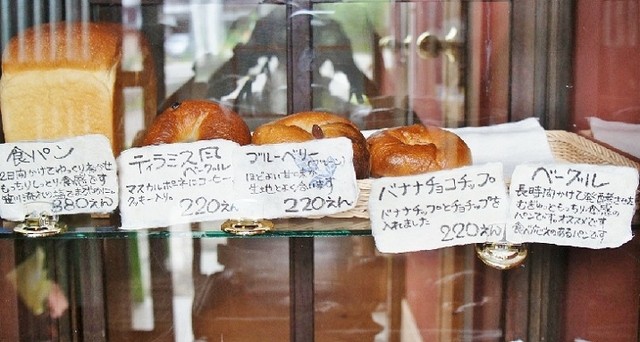 食パン
2日間かけてゆっくりねかせ
もっちりしっとり食感です
280えん
ティラミス風
マスカルポーネにコーヒー、
クッキー入り。
220えん
ブルーベリー
ほどよい甘さが
生地とよく合います
220えん
バナナチョコチップ
バナナチップとチョコチップを
入れました
220えん
ベーグル
長時間かけ発酵させた
むぎゅっともっちり食感の
パンです。オススメです
食べごたえのあるパンです